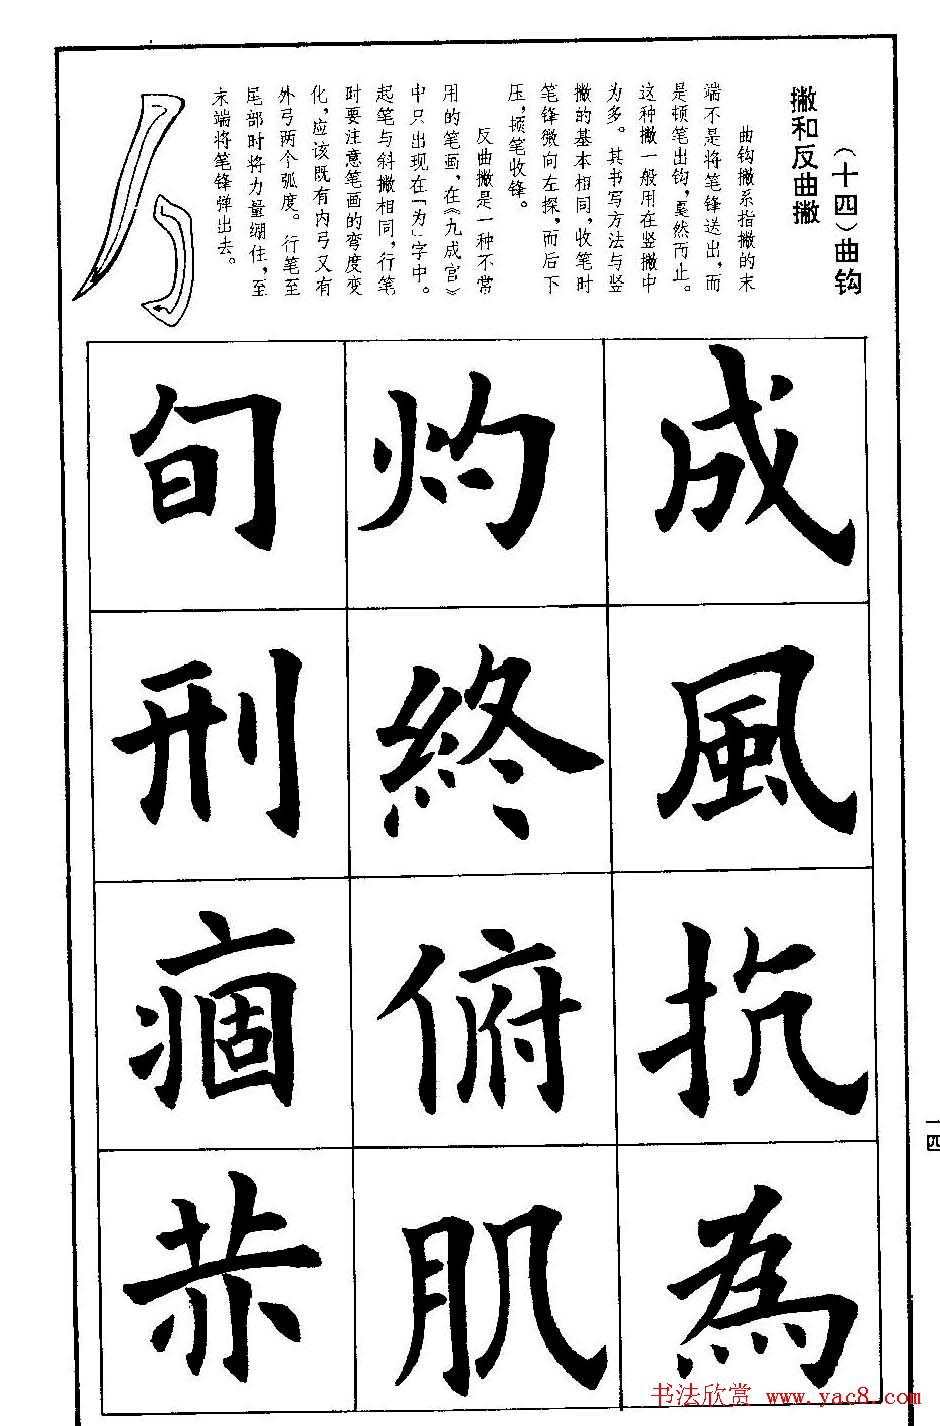 （十四）曲钩
撇和反曲撇
曲钩撇系指撇的末
端不是将笔锋送出，而
是顿笔出钩，戛然而止。
这种撇一般用在竖撇中
为多。其书写方法与竖
撇的基本相同，收笔时
笔锋微向左探，而后下
压，顿笔收锋。
反曲撇是一种不常
用的笔画，在《九成宫》
中只出现在「为」字中。
起笔与斜撇相同，行笔
时要注意笔画的弯度变
化，应该既有内弓又有
外弓两个弧度。行笔至
尾部时将力量绷住，至
末端将笔锋弹出去。
成風抗為
灼終俯肌
旬刑痼恭
一四
书法欣赏 www.yac8.com